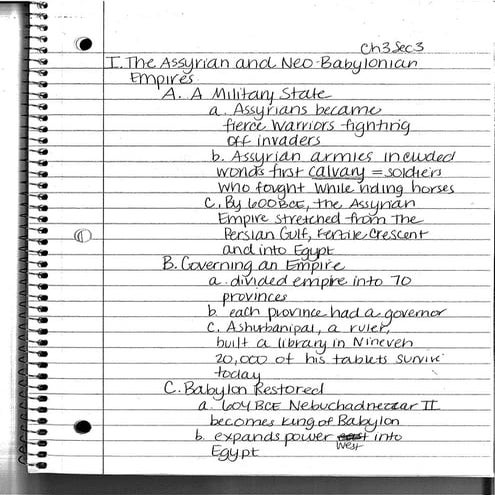 Ch 3 Sec 3
I. The Assyrian and Neo-Babylonian
Empires
A. A Military State
a. Assyrians became
fierce warriors fighting
off invaders
b. Assyrian armies included
world's first calvary = soldiers
who fought while riding horses
c. By 600 BCE, the Assyrian
Empire stretched from the
Persian Gulf, Fertile Crescent
and into Egypt
B. Governing an Empire
a. divided empire into 70
provinces
b. each province had a governor
c. Ashurbanipal, a ruler,
built a library in Nineveh
20,000 of his tablets survive
today
C. Babylon Restored
a. 604 BCE Nebuchadnezzar II
becomes king of Babylon
b. expands power east into
west
Egypt
①